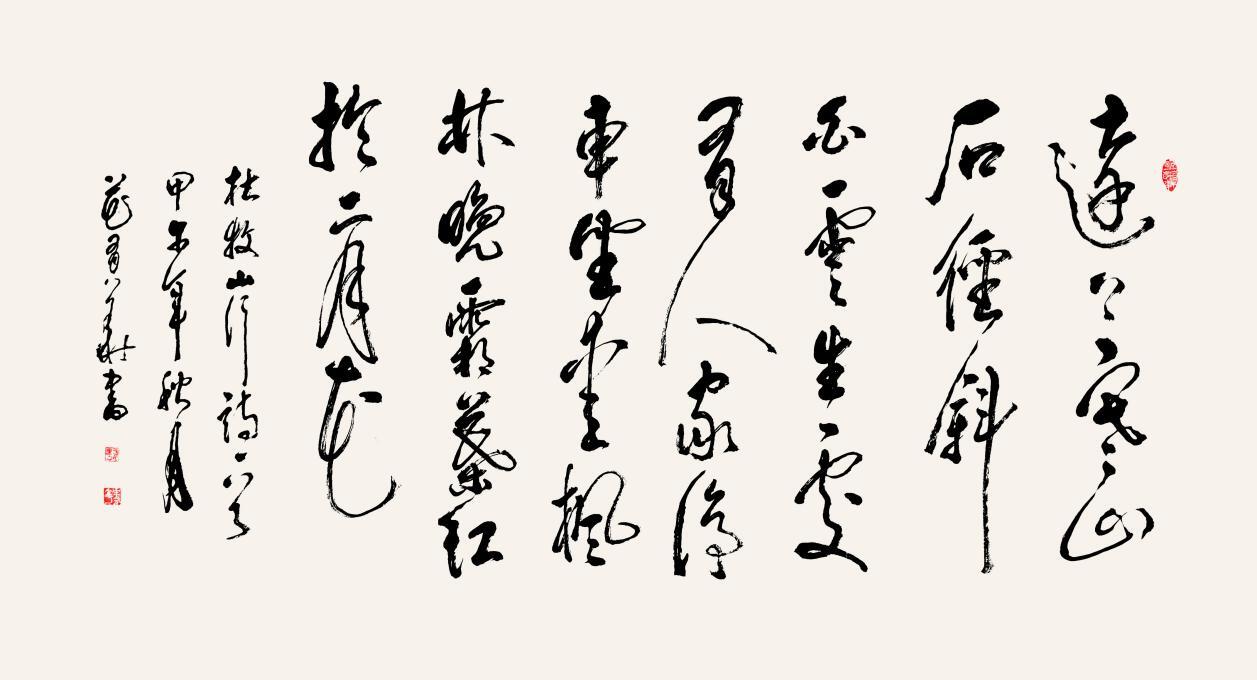 遠上寒山
石徑斜
白雲生處
有人家停
車坐愛楓
林晚霜葉紅
於二月花
杜牧山行詩一首
甲午年秋月
書